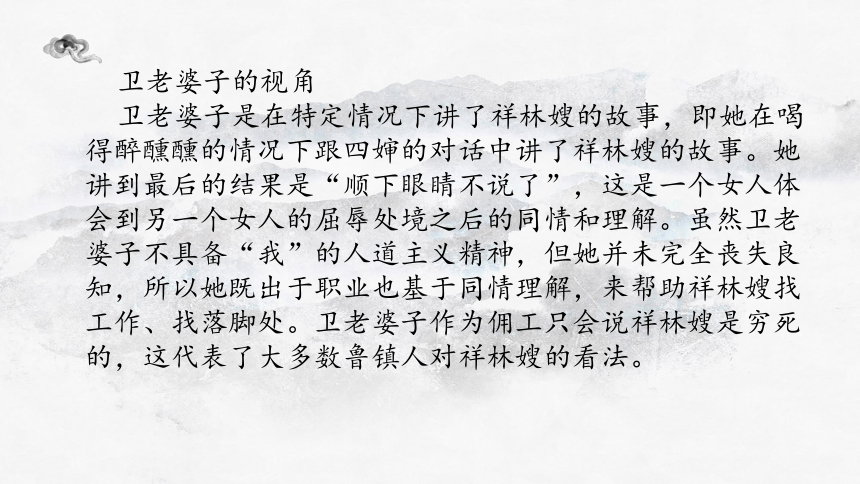 卫老婆子的视角
卫老婆子是在特定情况下讲了祥林嫂的故事，即她在喝
得醉醺醺的情况下跟四婶的对话中讲了祥林嫂的故事。她
讲到最后的结果是“顺下眼睛不说了”，这是一个女人体
会到另一个女人的屈辱处境之后的同情和理解。虽然卫老
婆子不具备“我”的人道主义精神，但她并未完全丧失良
知，所以她既出于职业也基于同情理解，来帮助祥林嫂找
工作、找落脚处。卫老婆子作为佣工只会说祥林嫂是穷死
的，这代表了大多数鲁镇人对祥林嫂的看法。